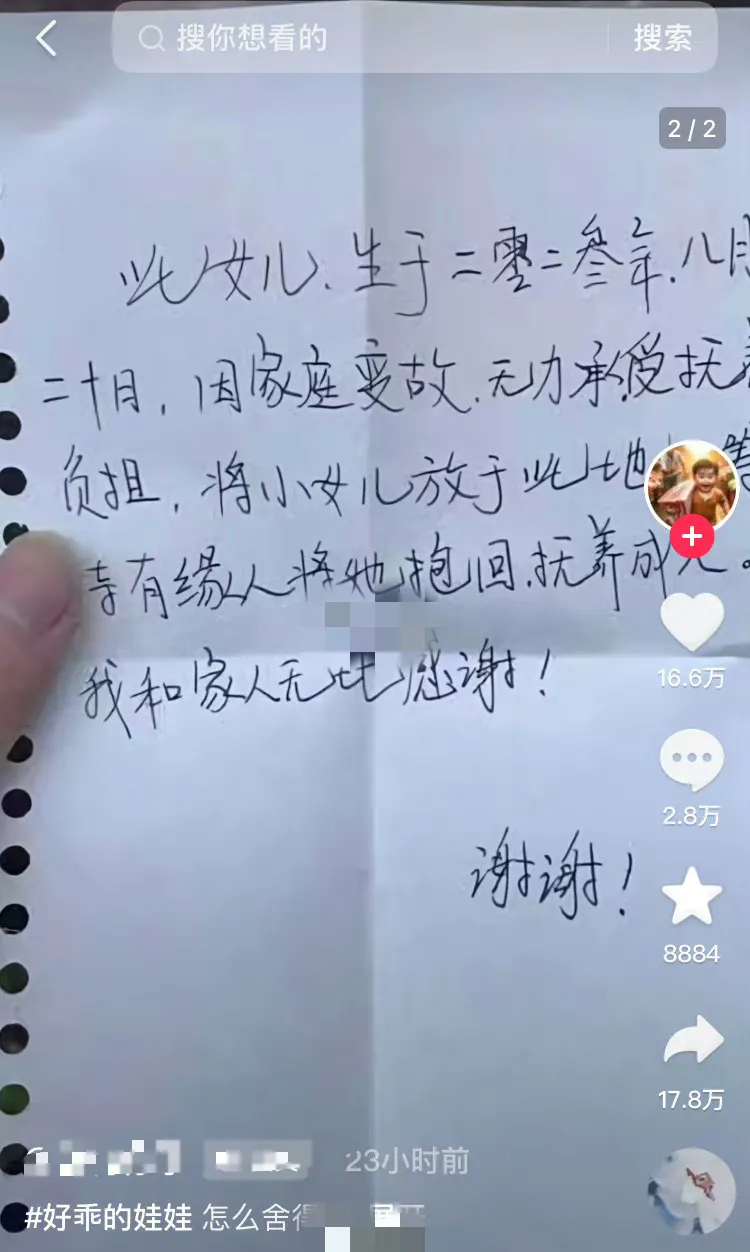 搜你想看的 搜索
2 / 2
此女儿、生于二零二叁年.八月
二十日，因家庭变故.无力承受抚养
负担，将小女儿放于此地
有缘人将她抱回.抚养成人。
我和家人无比感谢！
谢谢！
16.6万
2.8万
8884
17.8万
23小时前
#好乖的娃娃 怎么舍得